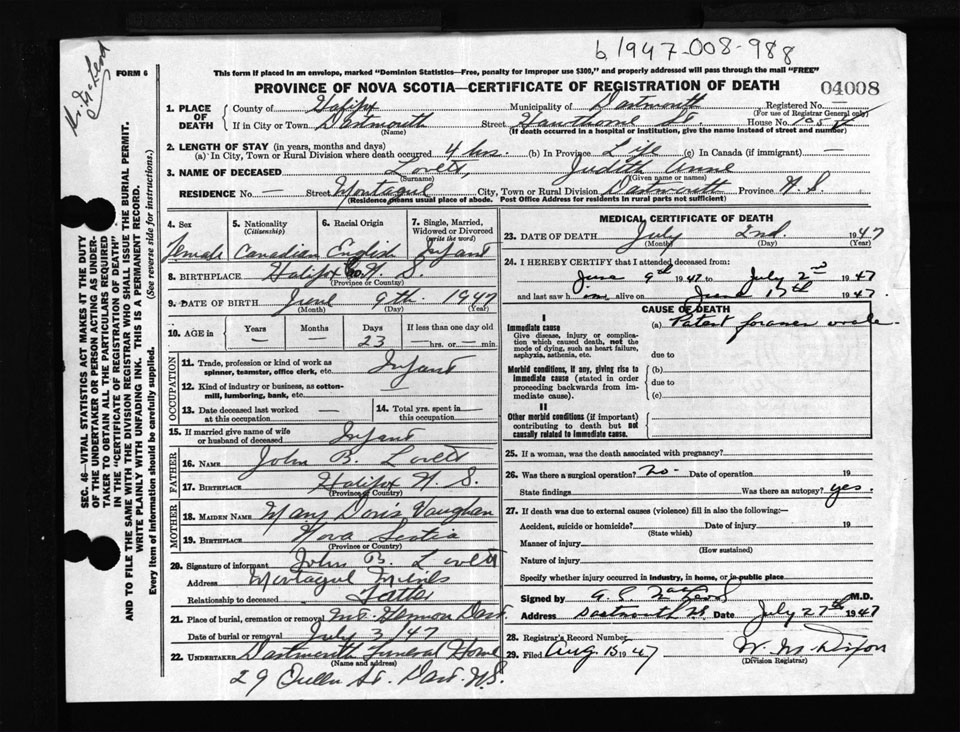 b 1947-008-988
FORM 6
This form if placed in an envelope, marked "Dominion Statistics—Free, penalty for improper use $300," and properly addressed will pass through the mail "FREE"
PROVINCE OF NOVA SCOTIA—CERTIFICATE OF REGISTRATION OF DEATH
04008
1. PLACE OF DEATH County of Halifax Municipality of Dartmouth Registered No. —
(For use of Registrar General only)
If in City or Town Dartmouth Street Hawthorne St. House No.
(Name) (If death occurred in a hospital or institution, give the name instead of street and number)
2. LENGTH OF STAY (in years, months and days)
(a) In City, Town or Rural Division where death occurred 4 hrs. (b) In Province Life (c) In Canada (if immigrant) —
3. NAME OF DECEASED Lovett, Judith Anne
(Surname) (Given name or names)
RESIDENCE No. — Street Montague City, Town or Rural Division Dartmouth Province N.S.
(Residence means usual place of abode. Post Office Address for residents in rural parts not sufficient)
4. Sex Female
5. Nationality (Citizenship) Canadian
6. Racial Origin English
7. Single, Married, Widowed or Divorced (write the word) Infant
8. BIRTHPLACE Halifax Co. N.S.
(Province or Country)
9. DATE OF BIRTH June 9th. 1947
(Month) (Day) (Year)
10. AGE in Years — Months — Days 23 If less than one day old —hrs. or —min.
OCCUPATION
11. Trade, profession or kind of work as spinner, teamster, office clerk, etc. Infant
12. Kind of industry or business, as cotton-mill, lumbering, bank, etc. —
13. Date deceased last worked at this occupation —
14. Total yrs. spent in this occupation —
15. If married give name of wife or husband of deceased Infant
FATHER
16. NAME John B. Lovett
17. BIRTHPLACE Halifax N.S.
(Province or Country)
MOTHER
18. MAIDEN NAME Mary Doris Vaughan
19. BIRTHPLACE Nova Scotia
(Province or Country)
20. Signature of informant John B. Lovett
Address Montague Mines
Relationship to deceased Father
21. Place of burial, cremation or removal Mt. Hermon Dart.
Date of burial or removal July 3/47
22. UNDERTAKER Dartmouth Funeral Home
(Name and address)
29 Queen St. Dart. N.S.
MEDICAL CERTIFICATE OF DEATH
23. DATE OF DEATH July 2nd. 1947
(Month) (Day) (Year)
24. I HEREBY CERTIFY that I attended deceased from:
June 9th 1947 to July 2nd 1947
and last saw h alive on June 17th 1947
CAUSE OF DEATH
I
Immediate cause
Give disease, injury or complication which caused death, not the mode of dying, such as heart failure, asphyxia, asthenia, etc.
(a) Patent foramen ovale.
due to
Morbid conditions, if any, giving rise to immediate cause (stated in order proceeding backwards from immediate cause).
(b)
due to
(c)
II
Other morbid conditions (if important) contributing to death but not causally related to immediate cause.
25. If a woman, was the death associated with pregnancy?
26. Was there a surgical operation? no- Date of operation 19
State findings Was there an autopsy? yes.
27. If death was due to external causes (violence) fill in also the following:—
Accident, suicide or homicide? Date of injury 19
(State which)
Manner of injury
(How sustained)
Nature of injury
Specify whether injury occurred in industry, in home, or in public place
Signed by M.D.
Address Dartmouth N.S. Date July 27th 1947
28. Registrar's Record Number
29. Filed Aug 15 1947 W. M. Dixon
(Division Registrar)
SEC. 46—VITAL STATISTICS ACT MAKES IT THE DUTY
OF THE UNDERTAKER OR PERSON ACTING AS UNDER-
TAKER TO OBTAIN ALL THE PARTICULARS REQUIRED
IN THE "CERTIFICATE OF REGISTRATION OF DEATH"
AND TO FILE THE SAME WITH THE DIVISION REGISTRAR WHO SHALL ISSUE THE BURIAL PERMIT.
WRITE PLAINLY WITH UNFADING INK. THIS IS A PERMANENT RECORD.
Every item of information should be carefully supplied. (See reverse side for instructions.)